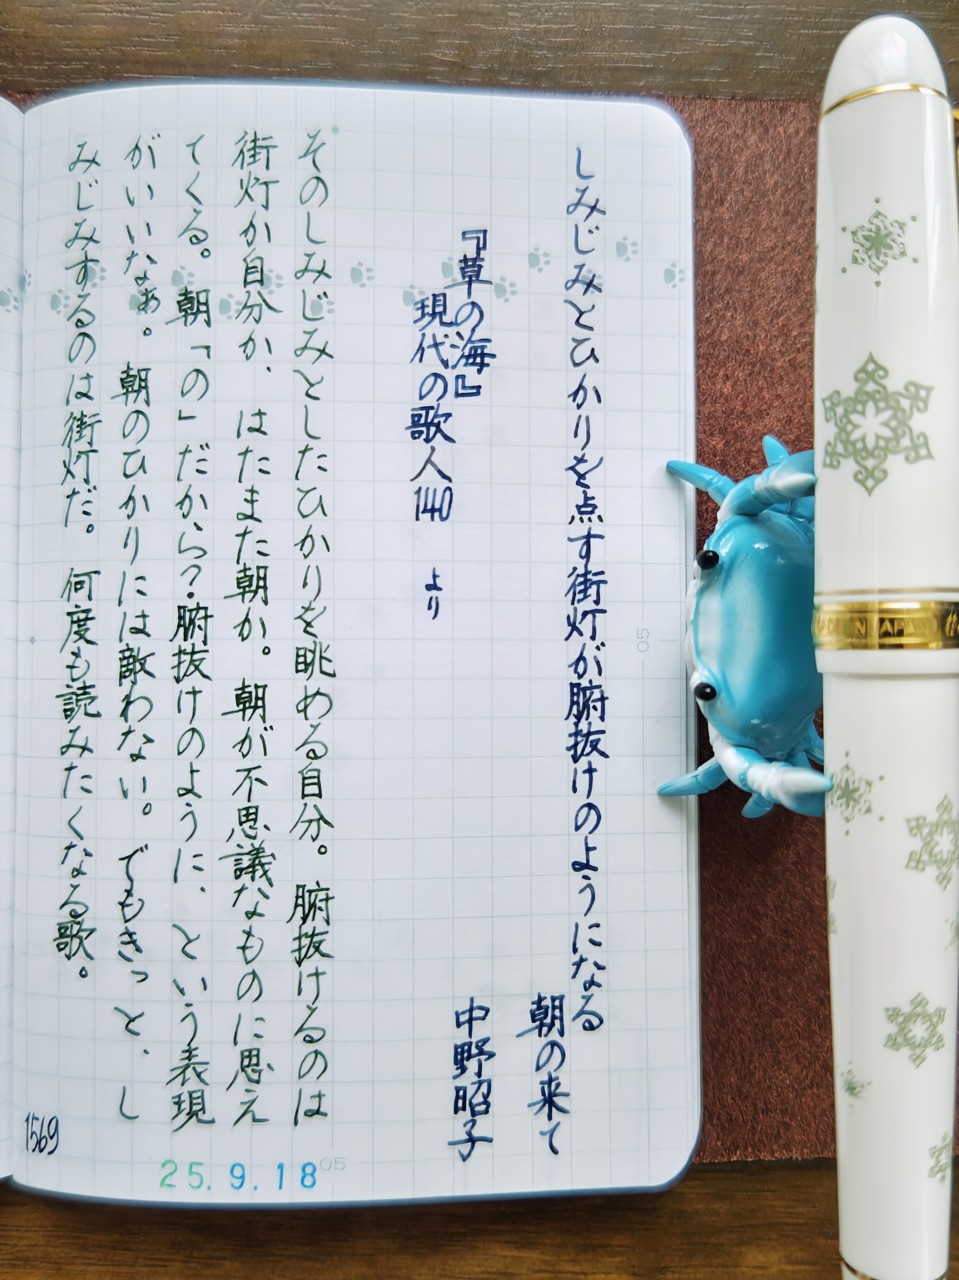 しみじみとひかりを点す街灯が腑抜けのようになる
朝の来て
中野昭子
『草の海』
現代の歌人140 より
そのしみじみとしたひかりを眺める自分。腑抜けるのは
街灯か自分か、はたまた朝か。朝が不思議なものに思え
てくる。朝「の」だから?腑抜けのように、という表現
がいいなぁ。朝のひかりには敵わない。でもきっと、し
みじみするのは街灯だ。何度も読みたくなる歌。
1569
25.9.18
05
05
MADE IN JAPAN